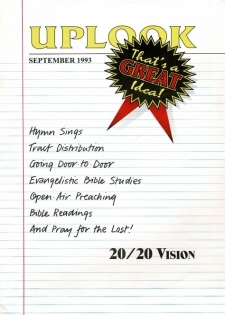 UPLOOK
SEPTEMBER 1993
That's a
GREAT
Idea!
Hymn Sings
Tract Distribution
Going Door-to-Door
Evangelistic Bible Studies
Open-Air Preaching
Bible Readings
And Pray for the Lost!
20/20 VISION